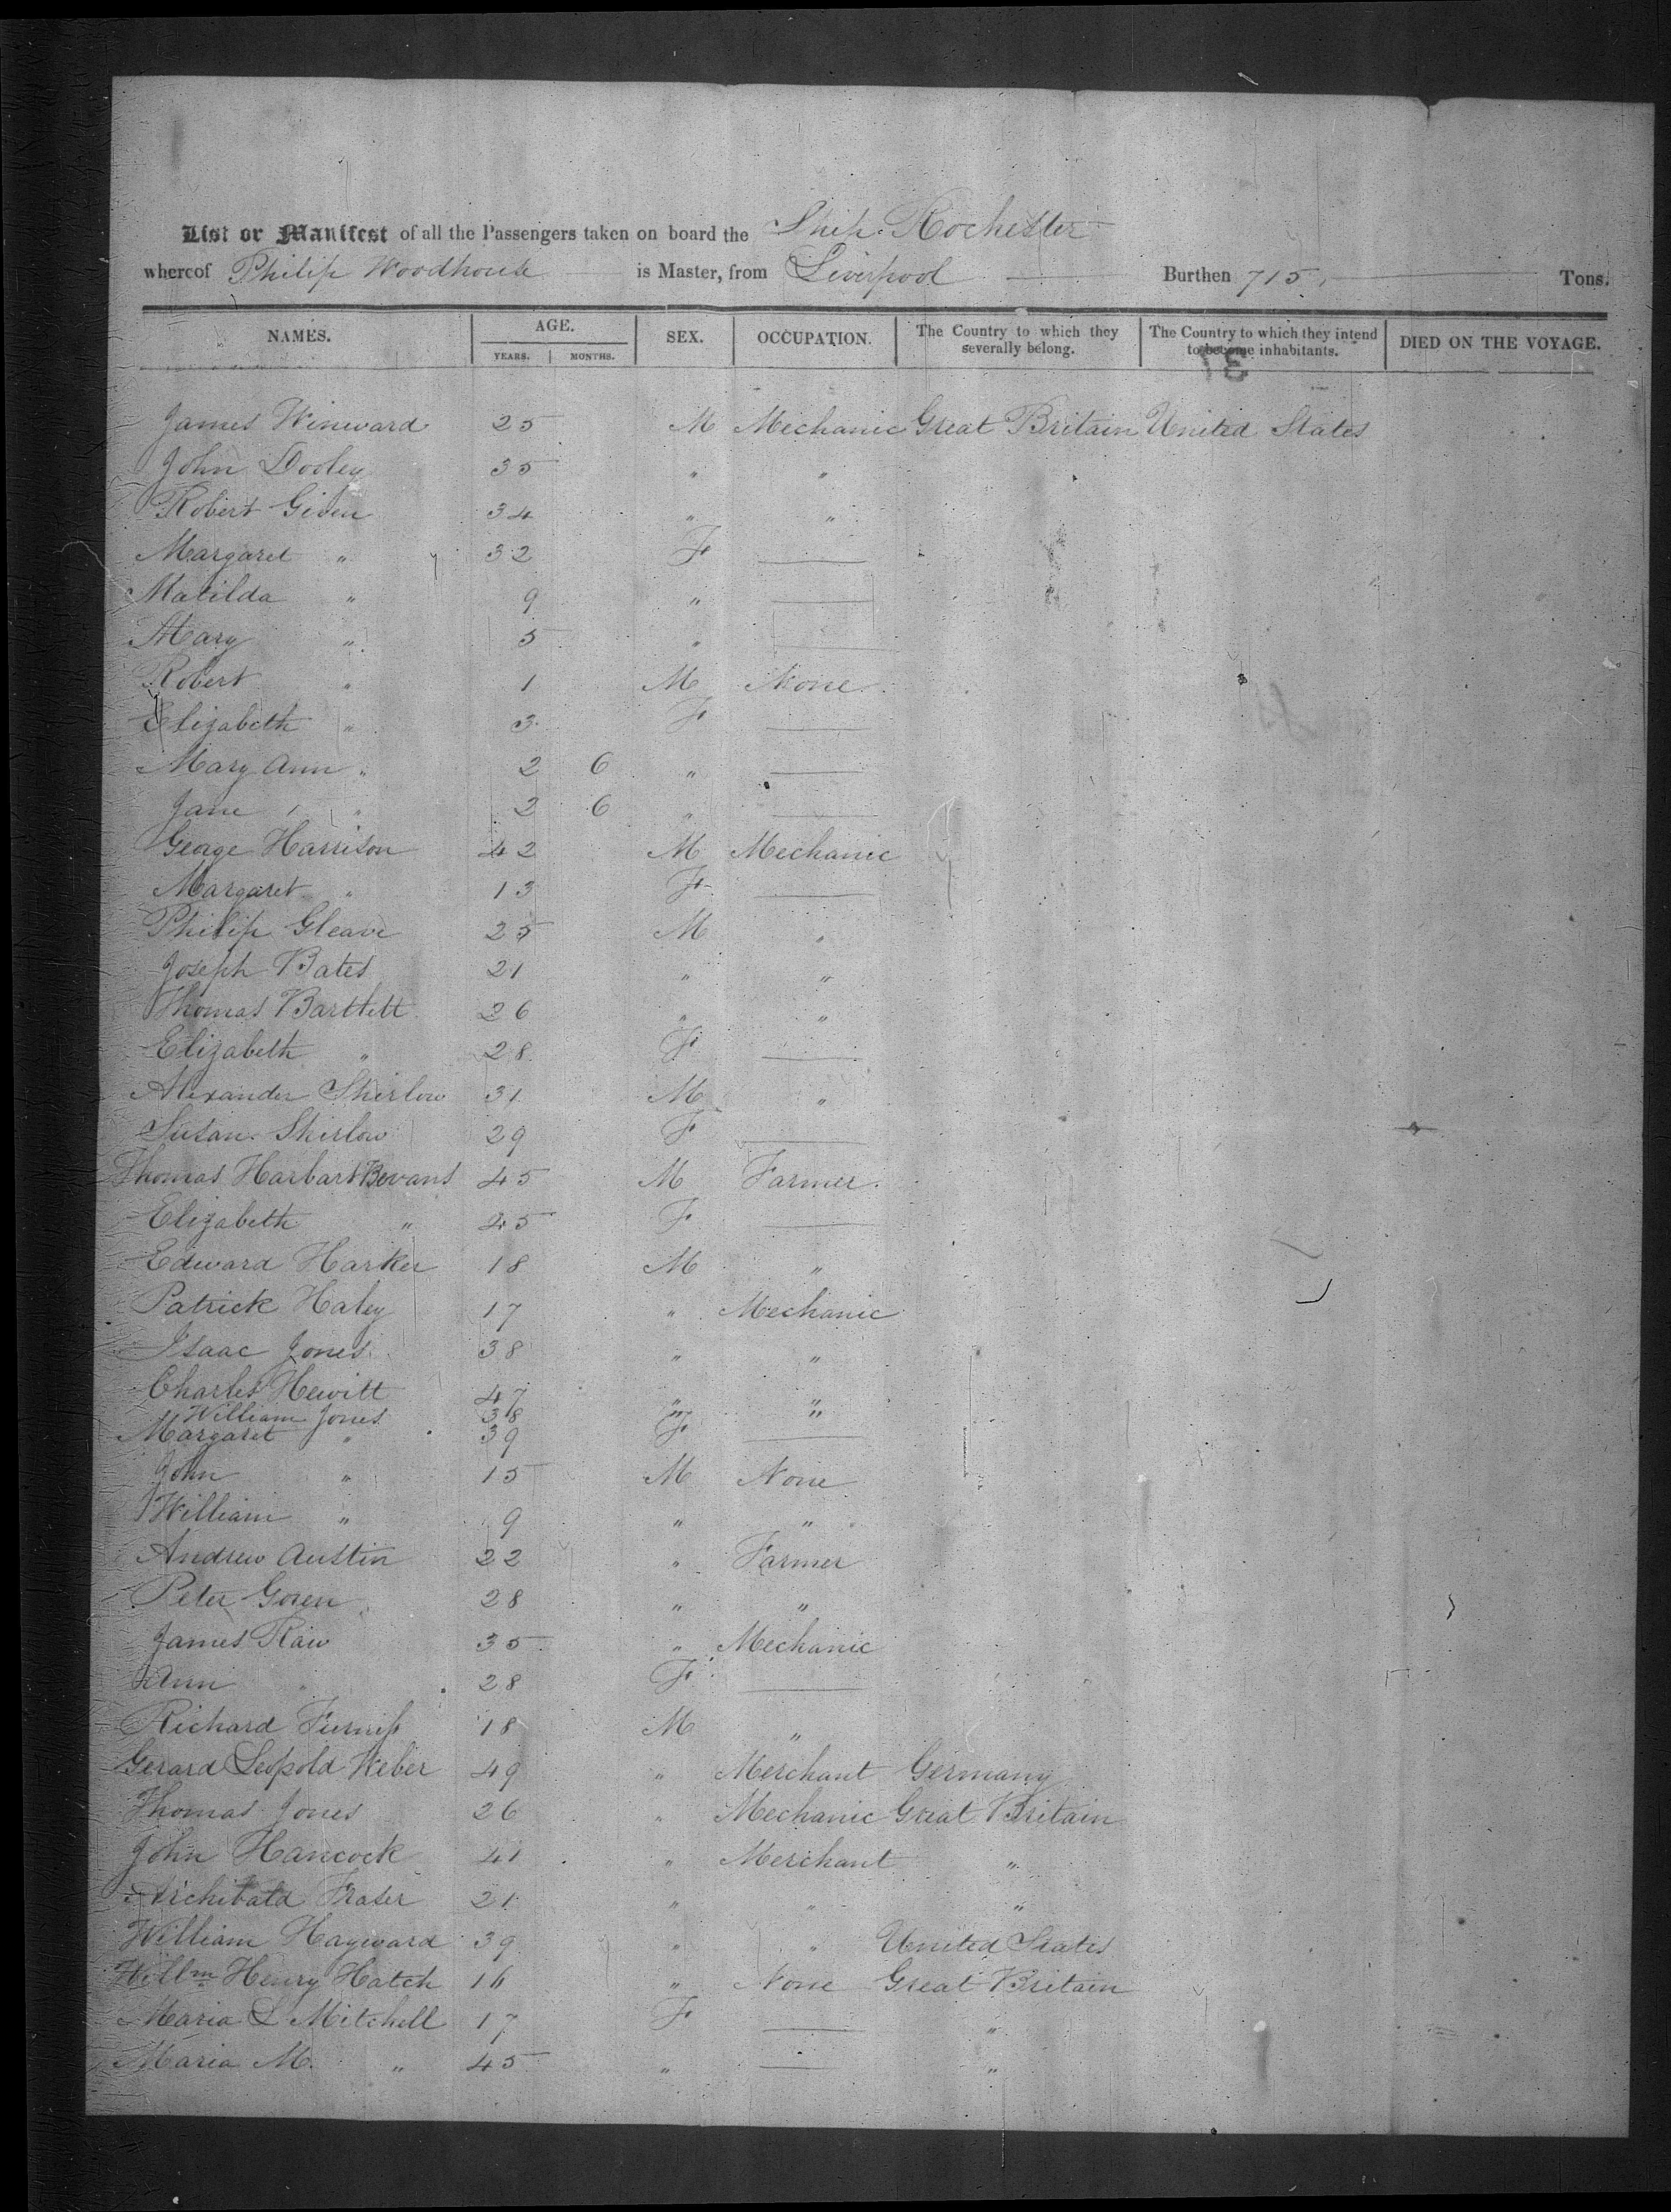 List or Manifest of all the Passengers taken on board the Ship Rochester
whereof Philip Woodhouse is Master, from Liverpool Burthen 715 Tons.
NAMES. AGE. SEX. OCCUPATION. The Country to which they severally belong. The Country to which they intend to become inhabitants. DIED ON THE VOYAGE.
YEARS. MONTHS.
James Winward 25 M Mechanic Great Britain United States
John Dooley 35 " "
Robert Given 34 " "
Margaret " 32 F
Matilda " 9 "
Mary " 5 "
Robert " 1 M None
Elizabeth " 3 F
Mary Ann " 2 6 "
Jane " 2 6 "
George Harrison 42 M Mechanic
Margaret " 13 F
Philip Gleave 25 M "
Joseph Bates 21 " "
Thomas Bartlett 26 " "
Elizabeth " 28 F
Alexander Shirlow 31 M "
Susan Shirlow 29 F
Thomas Harbart Bevans 45 M Farmer
Elizabeth " 45 F
Edward Harker 18 M "
Patrick Haley 17 " Mechanic
Isaac Jones 38 " "
Charles Hewitt 47 " "
William Jones 38 " "
Margaret " 39 F
John " 15 M None
William " 9 " "
Andrew Austin 22 " Farmer
Peter Goren 28 " "
James Raw 35 " Mechanic
Ann " 28 F
Richard Furniss 18 M "
Gerard Leopold Weber 49 " Merchant Germany
Thomas Jones 26 " Mechanic Great Britain
John Hancock 41 " Merchant "
Archibald Fraser 21 " " "
William Hayward 39 " " United States
Willm Henry Hatch 16 " None Great Britain
Maria L Mitchell 17 F "
Maria M. " 45 " "